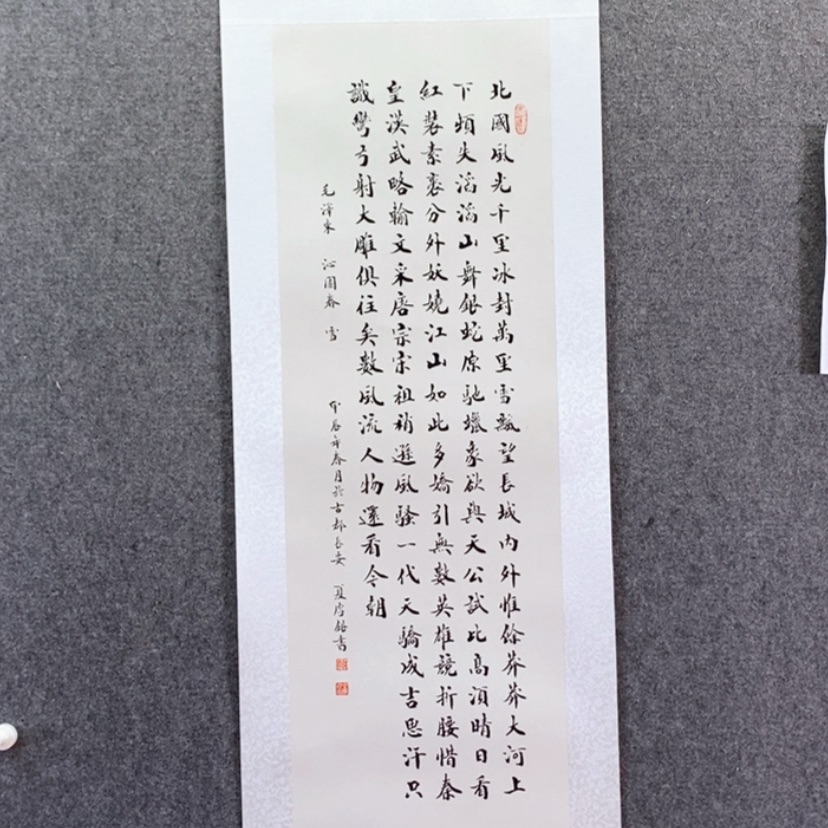 北國風光千里冰封萬里雪飄望長城內外惟餘莽莽大河上
下頓失滔滔山舞銀蛇原馳蠟象欲與天公試比高須晴日看
紅裝素裹分外妖嬈江山如此多嬌引無數英雄競折腰惜秦
皇漢武略輸文采唐宗宋祖稍遜風騷一代天驕成吉思汗只
識彎弓射大雕俱往矣數風流人物還看今朝
毛澤東 沁園春 雪 甲辰年春月於古都長安 夏 銀書